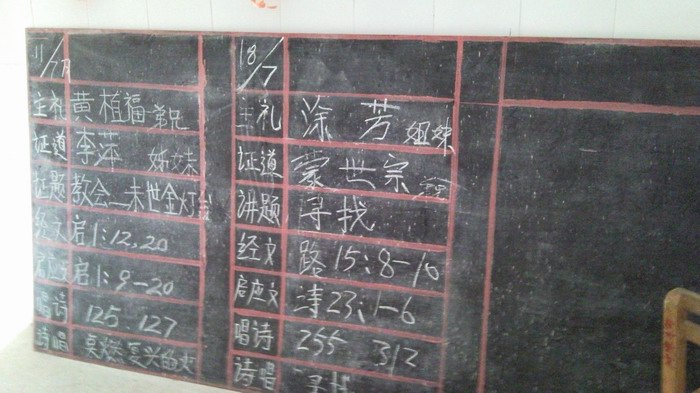 11/7月
主礼 黄植福 弟兄
证道 李萍 姊妹
证题 教会—末世金灯台
经文 启1:12,20
启应文 启1:9-20
唱诗 125. 127
诗唱 复兴的火
18/7
主礼 涂芳 姐妹
证道 蒙世宗
讲题 寻找
经文 路15:8-10
启应文 诗23:1-6
唱诗 255 312
诗唱 寻找